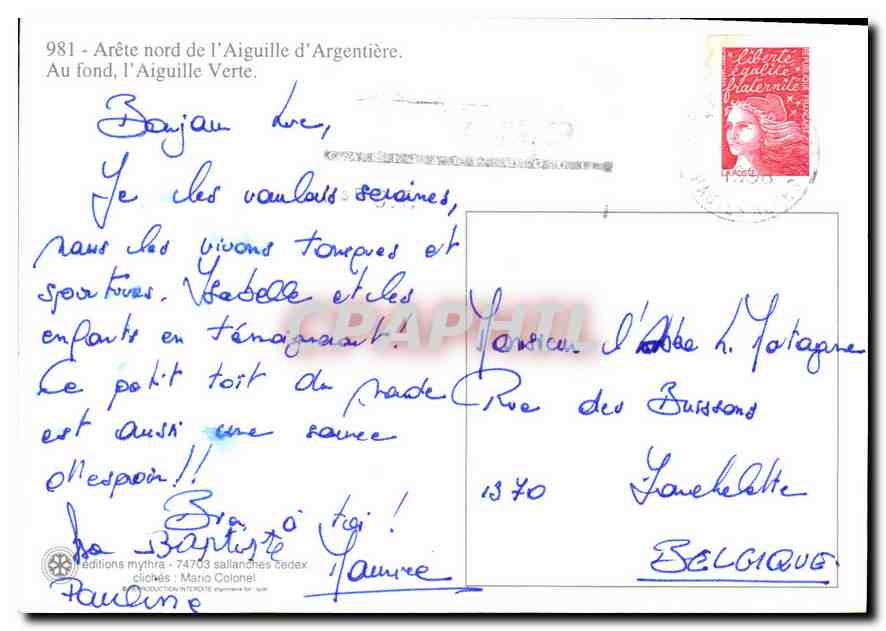 981 - Arête nord de l'Aiguille d'Argentière.
Au fond, l'Aiguille Verte.
liberté
égalité
fraternité
RÉPUBLIQUE FRANÇAISE
LA POSTE
Bonjour Luc,
Je les voulais sereines,
nous les vivons toniques et
sportives. Ysabelle et les
enfants en témoignent!
Ce petit toit du monde
est aussi une source
d'espoir!!
à toi!
Isa Baptiste
Maurice
Pauline
Monsieur l'Abbé L. Matagne
Rue des Buissons
1370 Jauchelette
BELGIQUE
CPAPHIL
éditions mythra - 74703 sallanches cedex
clichés : Mario Colonel
REPRODUCTION INTERDITE